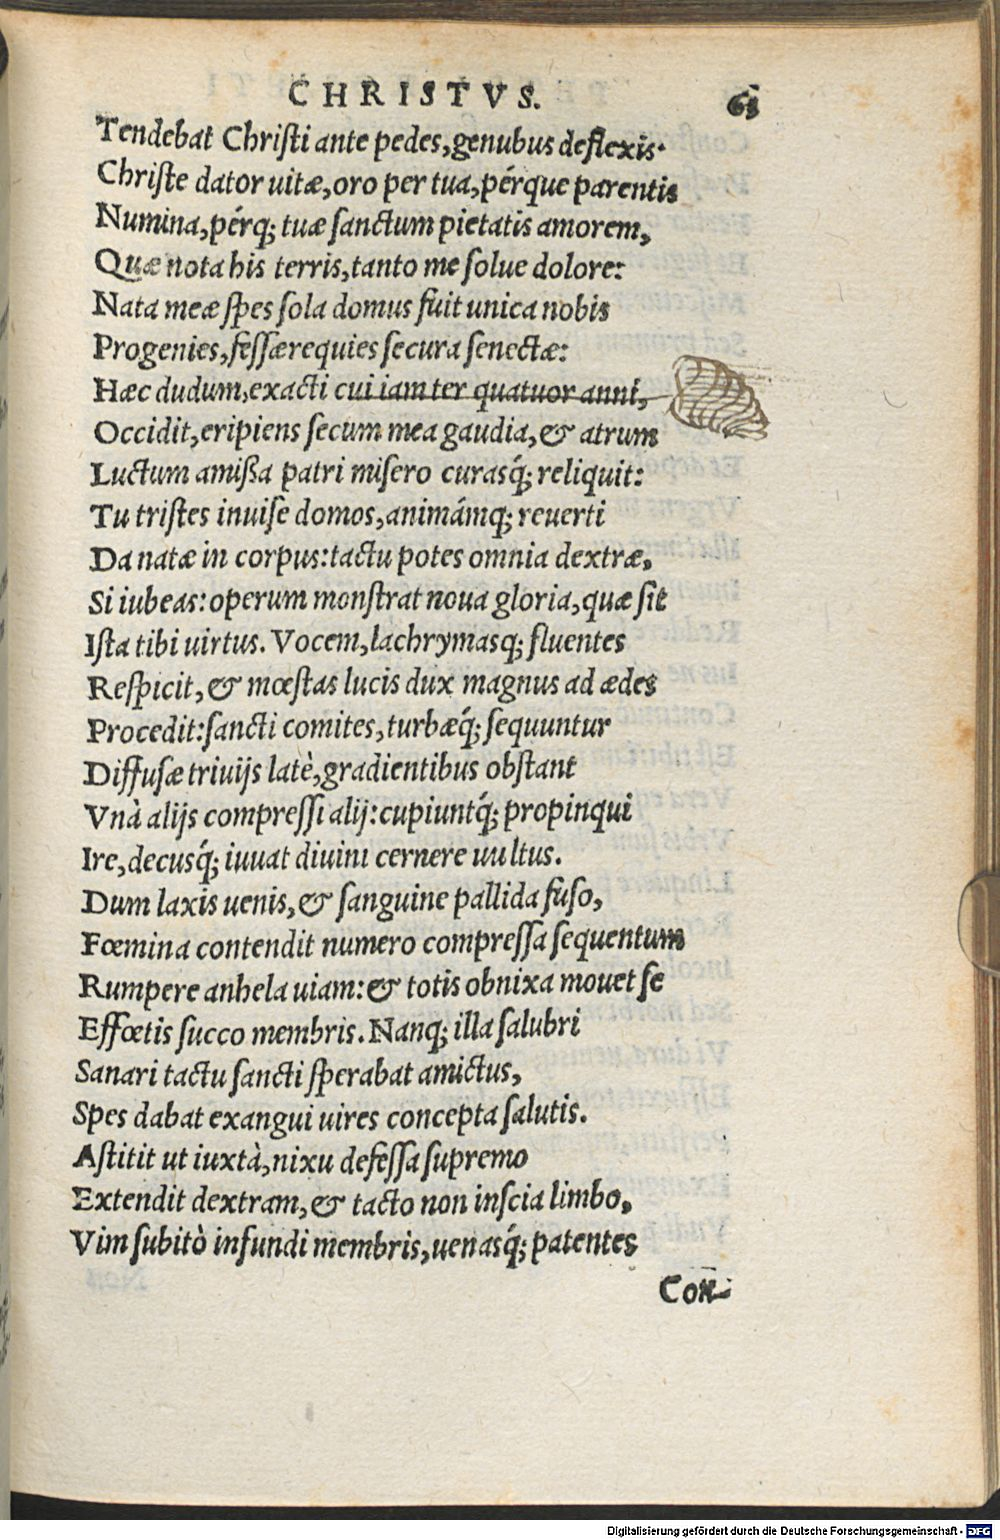 CHRISTVS.
Tendebat Christi ante pedes, genubus deflexis.
Christe dator uitæ, oro per tua, pérque parentis
Numina, pérq; tuæ sanctum pietatis amorem,
Quæ nota his terris, tanto me solue dolore:
Nata meæ spes sola domus fuit unica nobis
Progenies, fessæ requies secura senectæ:
Hæc dudum, exacti cui iam ter quatuor anni,
Occidit, eripiens secum mea gaudia, & atrum
Luctum amißa patri misero curasq́; reliquit:
Tu tristes inuise domos, animámq; reuerti
Da natæ in corpus: tactu potes omnia dextræ,
Si iubeas: operum monstrat noua gloria, quæ sit
Ista tibi uirtus. Vocem, lachrymasq; fluentes
Respicit, & mœstas lucis dux magnus ad ædes
Procedit: sancti comites, turbæq́; sequuntur
Diffusæ triuijs latè, gradientibus obstant
Vnà alijs compressi alij: cupiuntq́; propinqui
Ire, decusq́; iuuat diuini cernere uultus.
Dum laxis uenis, & sanguine pallida fuso,
Fœmina contendit numero compressa sequentum
Rumpere anhela uiam: & totis obnixa mouet se
Effœtis succo membris. Nanq; illa salubri
Sanari tactu sancti sperabat amictus,
Spes dabat exangui uires concepta salutis.
Astitit ut iuxtà, nixu defessa supremo
Extendit dextram, & tacto non inscia limbo,
Vim subitò infundi membris, uenasq́; patentes
Con-
Digitalisierung gefördert durch die Deutsche Forschungsgemeinschaft - DFG